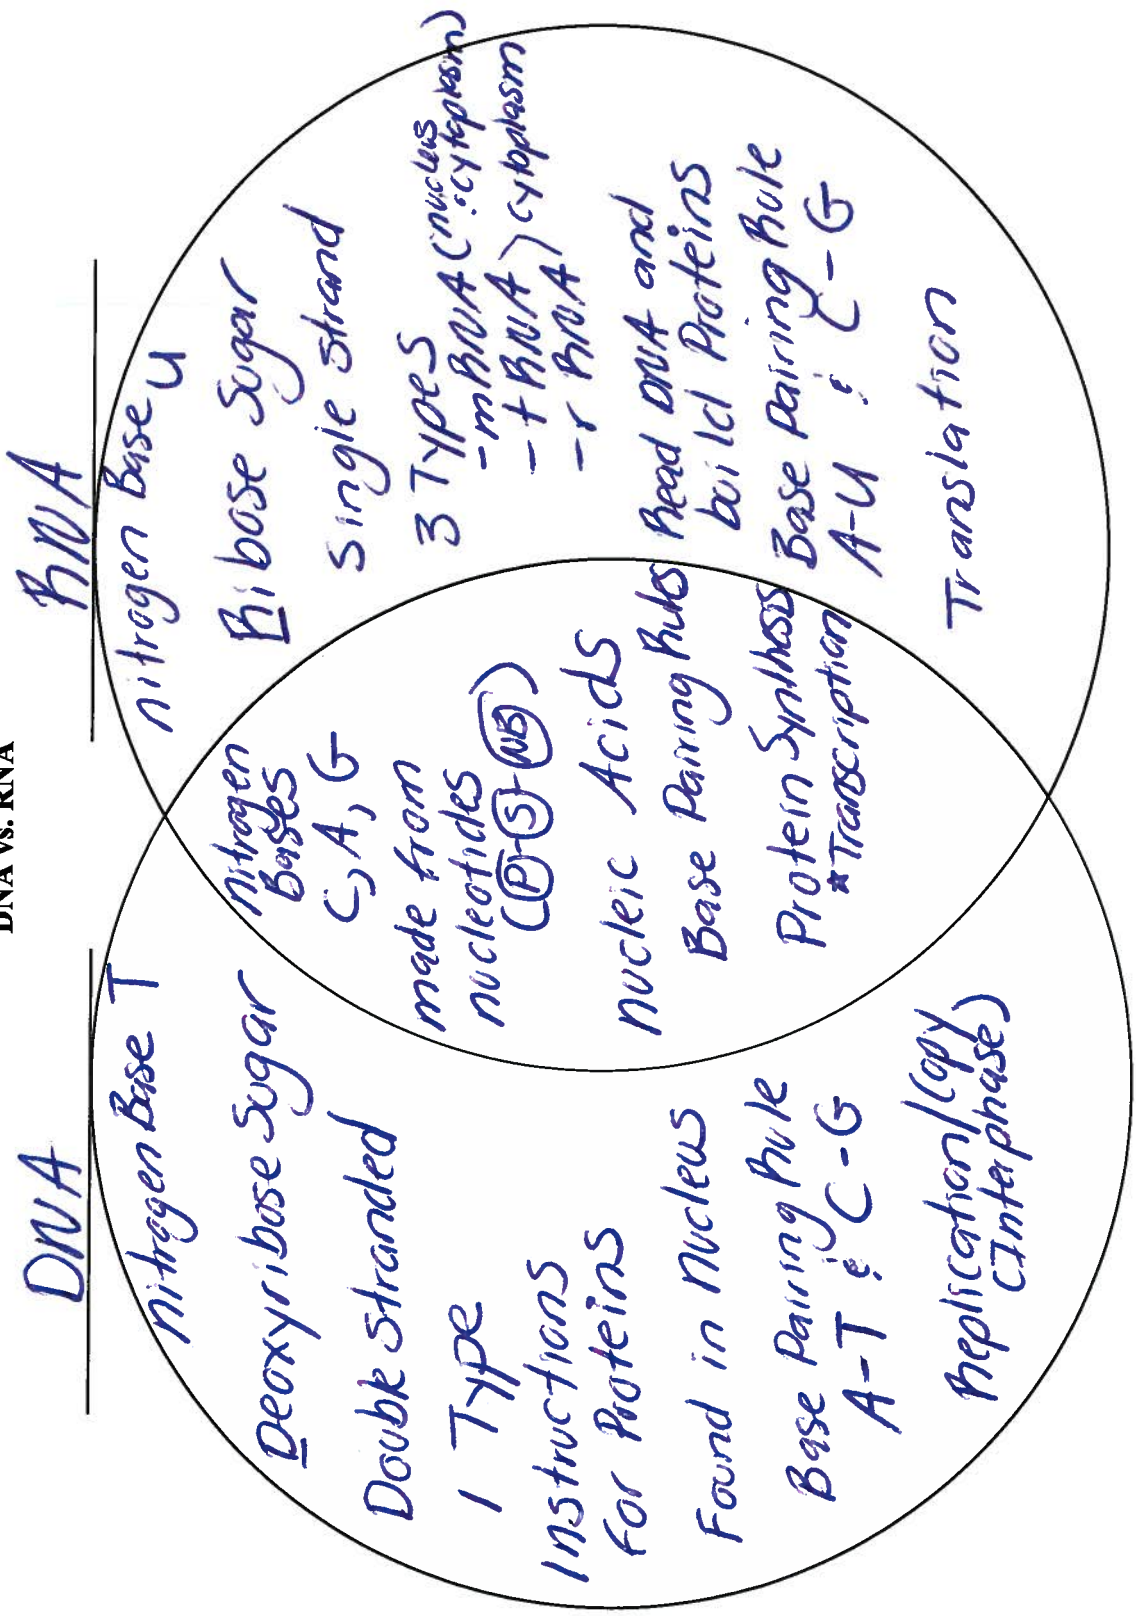 DNA vs. RNA
DNA
nitrogen Base T
Deoxyribose Sugar
Double stranded
1 Type
Instructions
for Proteins
Found in nucleus
Base Pairing Rule
A-T & C-G
Replication/Copy
(Interphase)
nitrogen
Bases
C, A, G
made from
nucleotides
(P-S-NB)
nucleic Acids
Base Pairing Rules
Protein Synthesis
*Transcription
RNA
nitrogen Base U
Ribose Sugar
Single strand
3 Types
-mRNA (nucleus
& cytoplasm)
-tRNA) cytoplasm
-rRNA)
Read DNA and
build Proteins
Base Pairing Rule
A-U & C-G
Translation